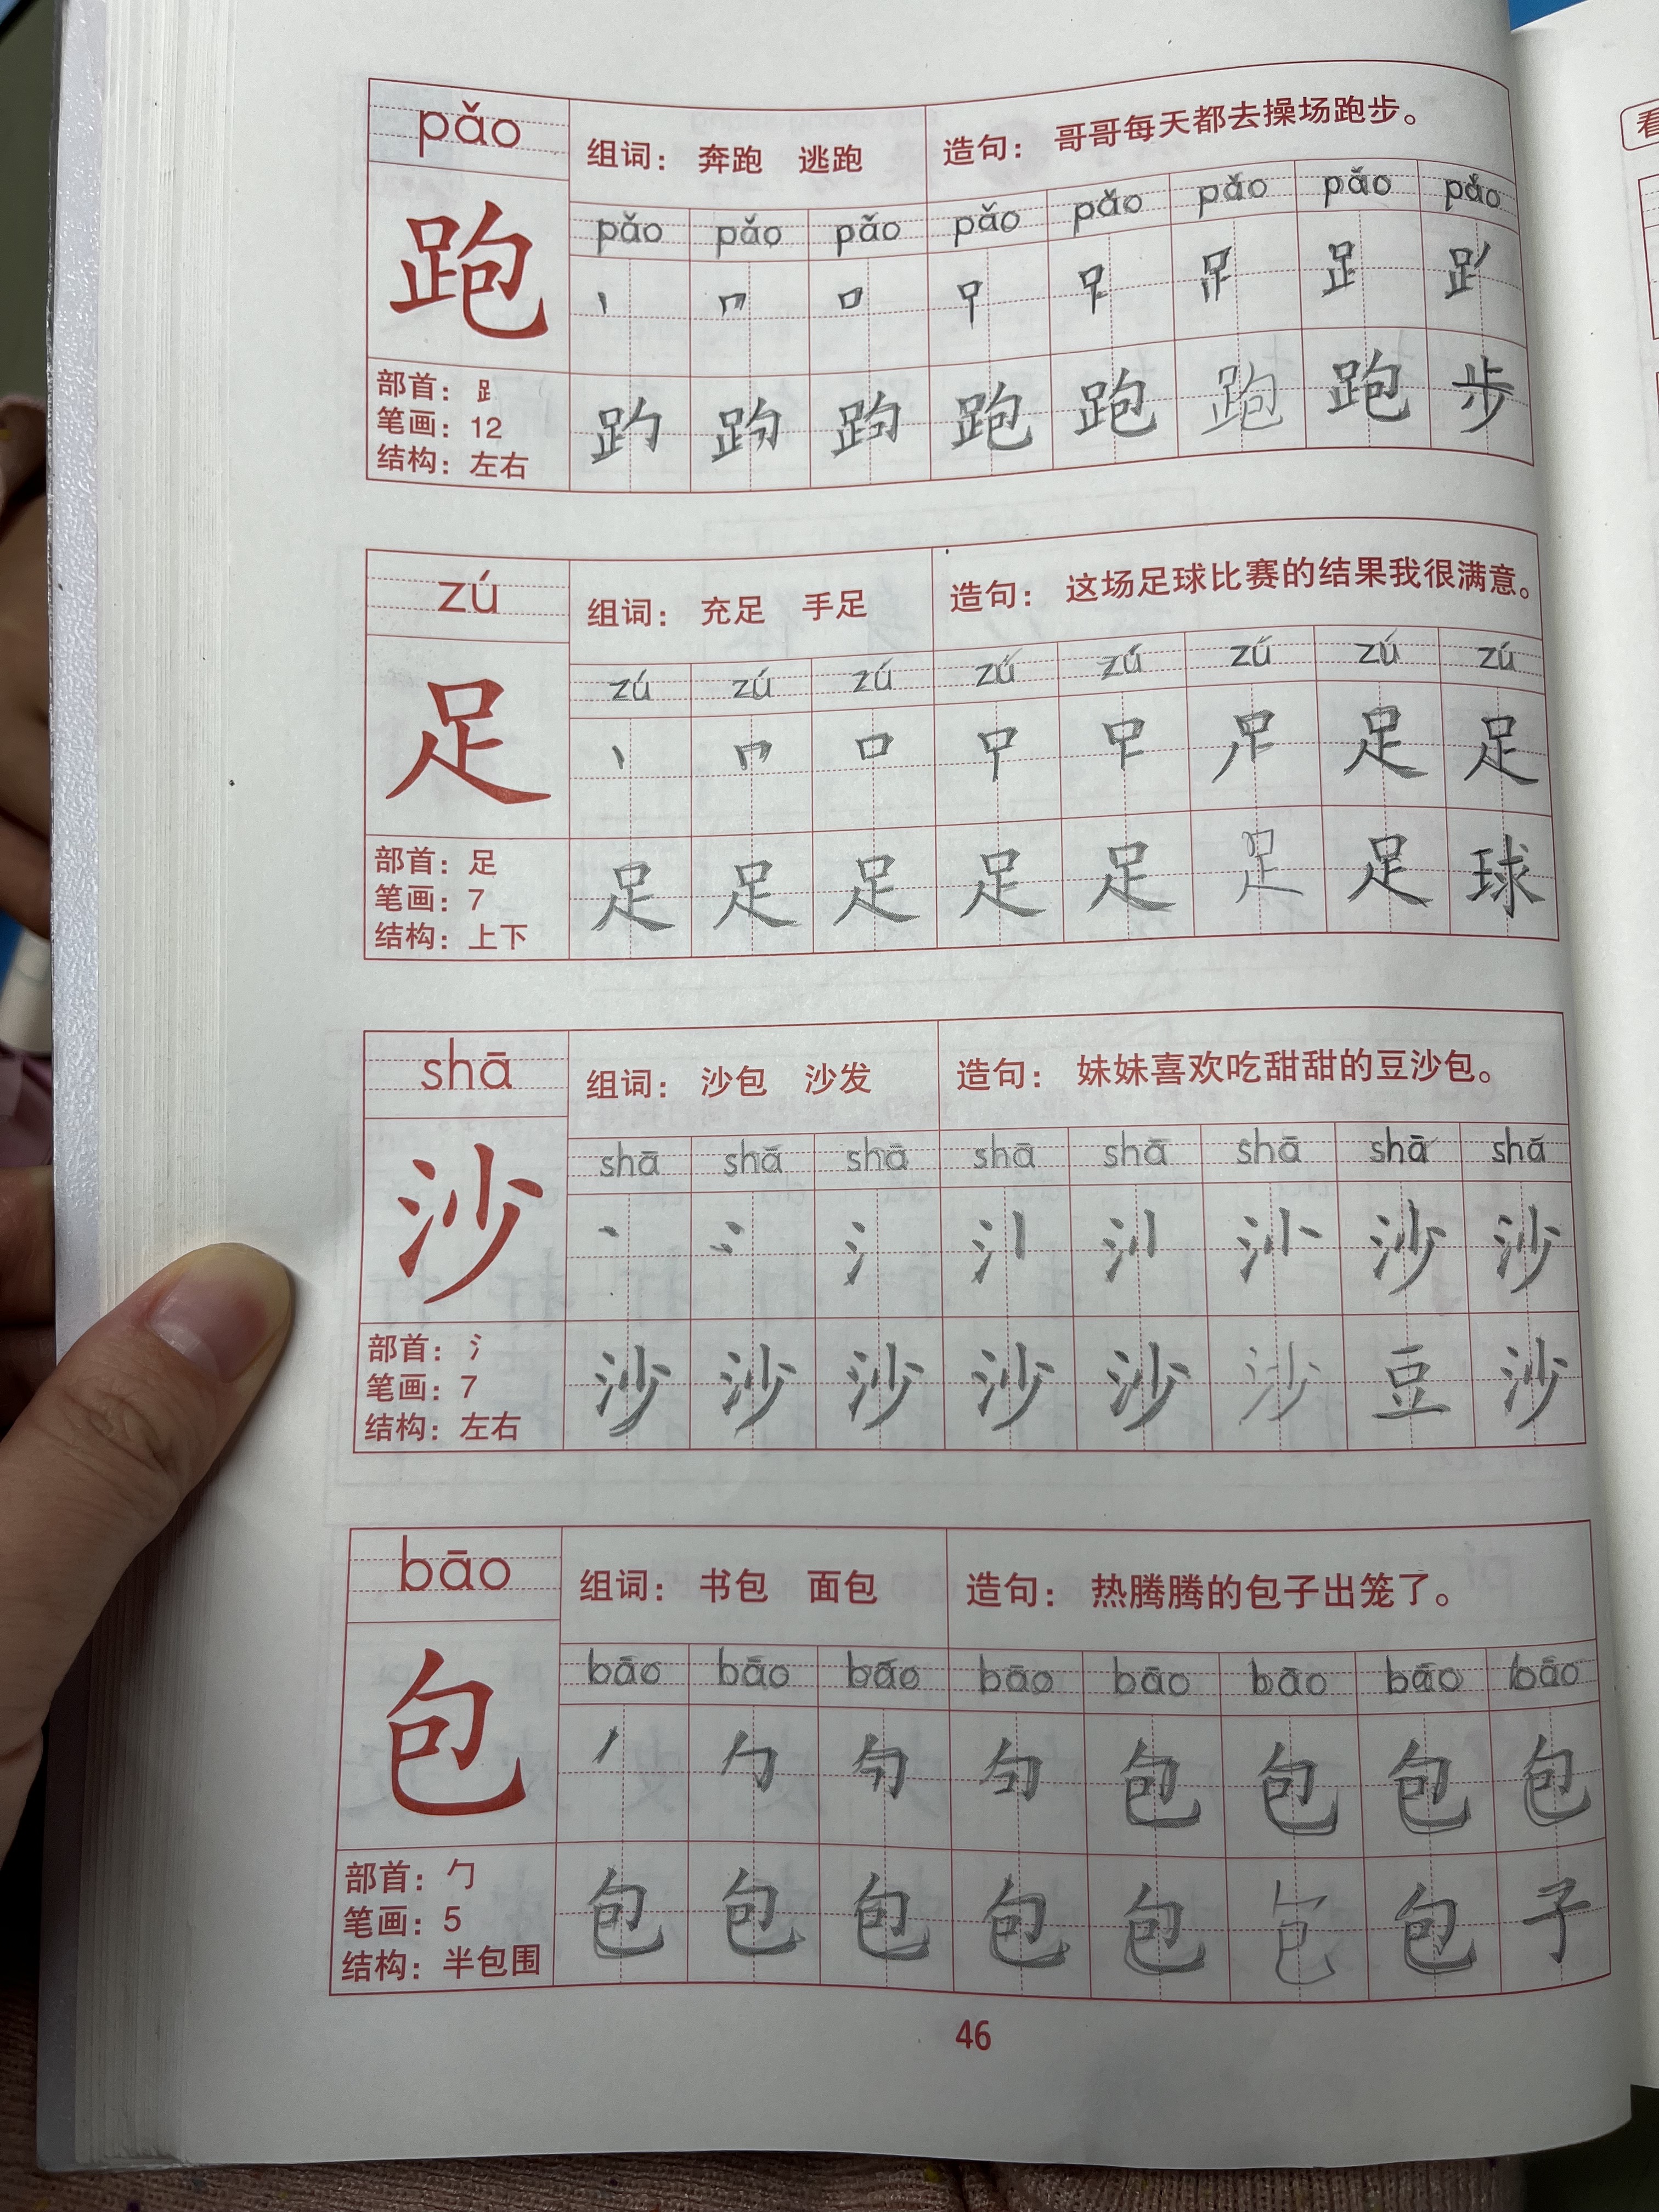 pǎo
组词： 奔跑 逃跑 造句： 哥哥每天都去操场跑步。
pǎo pǎo pǎo pǎo pǎo pǎo pǎo pǎo
跑
部首：𧾷
笔画：12
结构：左右
跑 跑 跑 跑 步
zú
组词： 充足 手足 造句： 这场足球比赛的结果我很满意。
zú zú zú zú zú zú zú zú
足
口 足 足
部首：足
笔画：7
结构：上下
足 足 足 足 足 足 足 球
shā
组词： 沙包 沙发 造句： 妹妹喜欢吃甜甜的豆沙包。
shā shā shā shā shā shā shā shā
沙
氵 沙 沙
部首：氵
笔画：7
结构：左右
沙 沙 沙 沙 沙 沙 豆 沙
bāo
组词： 书包 面包 造句： 热腾腾的包子出笼了。
bāo bāo bāo bāo bāo bāo bāo bāo
包
丿 勹 包 包 包 包
部首：勹
笔画：5
结构：半包围
包 包 包 包 包 包 包 子
46
看